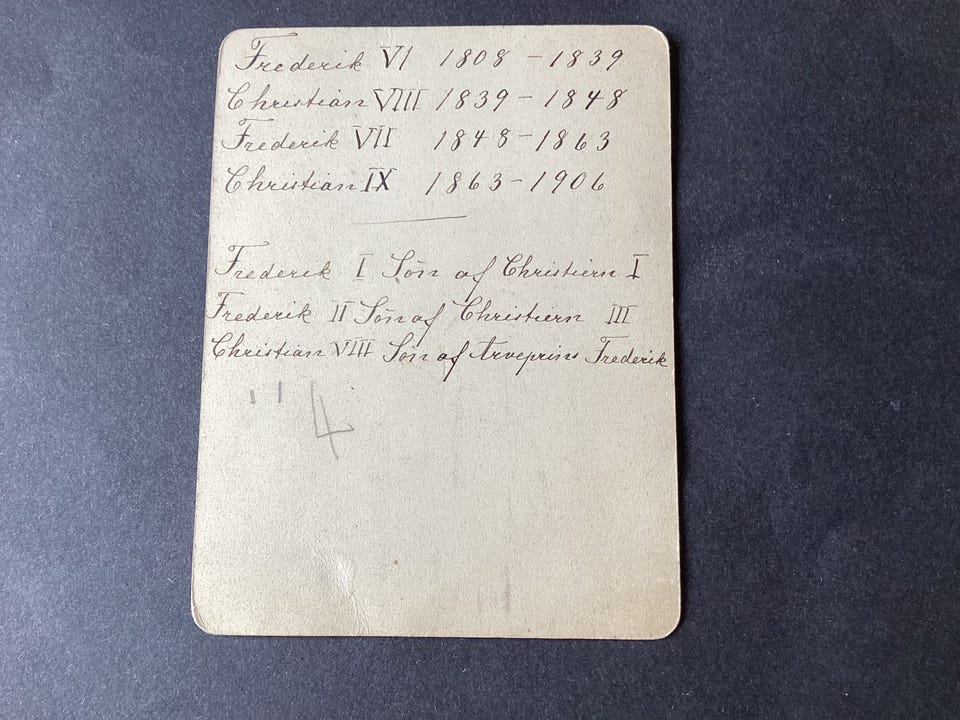 Frederik VI 1808 - 1839
Christian VIII 1839 - 1848
Frederik VII 1848 - 1863
Christian IX 1863 - 1906
Frederik I Sön af Christiern I
Frederik II Sön af Christiern III
Christian VIII Sön af Arveprins Frederik
" 4